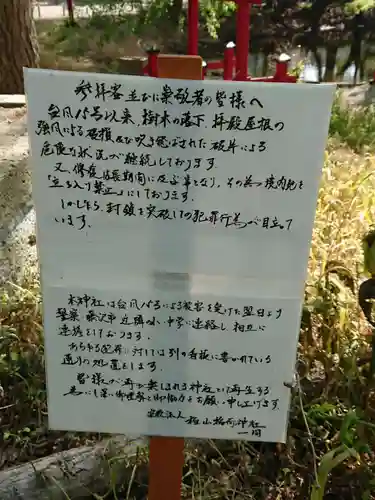 参拝客並びに崇敬者の皆様へ
台風15号以来、樹木の落下、拝殿屋根の
強風による破損及び吹き飛ばされた破片による
危険な状況が継続しております。
又、修復は長期間に及ぶ事となり、その為、境内地を
「立ち入り禁止」にしております。
しかしながら、封鎖を突破しての犯罪行為が目立って
います。
本神社は台風15号による被害を受けた翌日より
警察、藤沢市、近隣の小・中学に連絡し、相互に
連携をとっております。
あらゆる犯罪に対しては別の看板に書かれている
通りの処置をとります。
皆様が再び親しまれる神社として再生する
為にも深い御理解と御協力をお願い申し上げます。
宗教法人 稲荷神社
一同